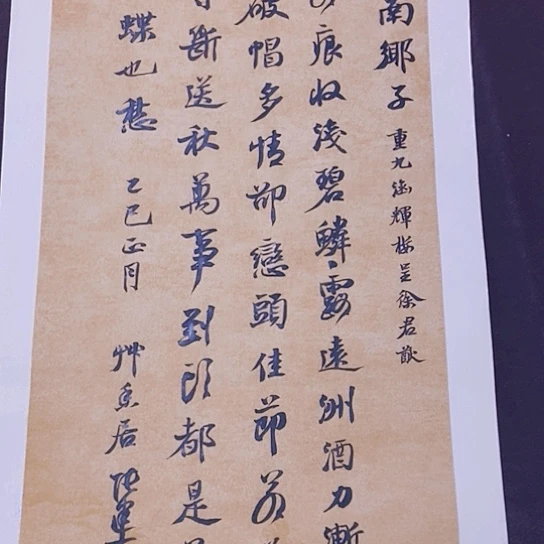 南鄉子 重九涵輝樓呈徐君猷
痕收淺碧鱗、露遠洲酒力漸
破帽多情卻戀頭佳節若
斷送秋萬事到頭都是
蝶也愁 乙巳正月 艸香居